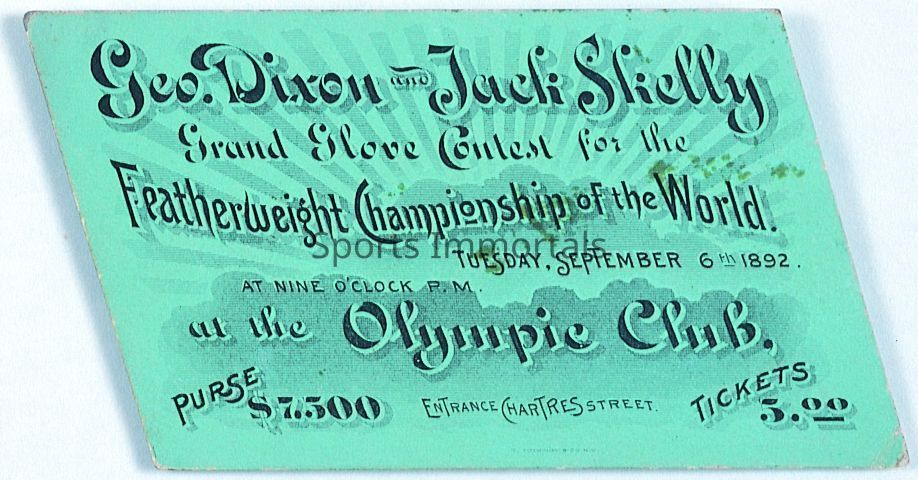 Geo. Dixon and Jack Skelly
Grand Glove Contest for the
Featherweight Championship of the World.
Sports Immortals
TUESDAY, SEPTEMBER 6th 1892.
AT NINE O'CLOCK P.M.
at the Olympic Club,
PURSE $7.500
ENTRANCE CHARTRES STREET.
TICKETS 5.00